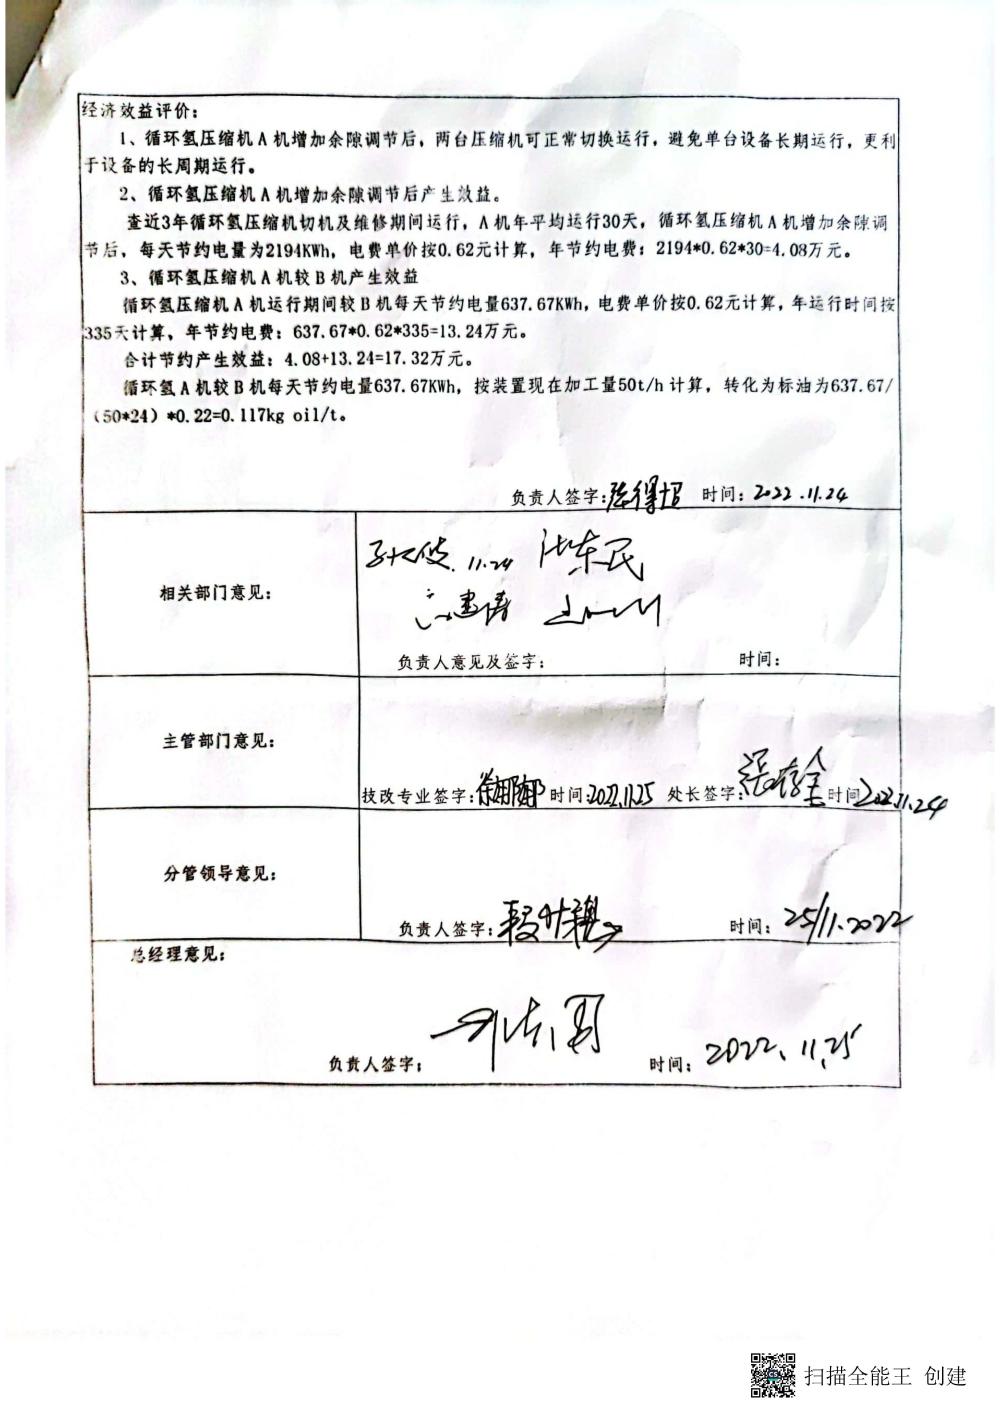 经济效益评价：
1、循环氢压缩机A机增加余隙调节后，两台压缩机可正常切换运行，避免单台设备长期运行，更利
于设备的长周期运行。
2、循环氢压缩机A机增加余隙调节后产生效益。
查近3年循环氢压缩机切机及维修期间运行，A机年平均运行30天，循环氢压缩机A机增加余隙调
节后，每天节约电量为2194KWh，电费单价按0.62元计算，年节约电费：2194*0.62*30=4.08万元。
3、循环氢压缩机A机较B机产生效益
循环氢压缩机A机运行期间较B机每天节约电量637.67KWh，电费单价按0.62元计算，年运行时间按
335天计算，年节约电费：637.67*0.62*335=13.24万元。
合计节约产生效益：4.08+13.24=17.32万元。
循环氢A机较B机每天节约电量637.67KWh，按装置现在加工量50t/h计算，转化为标油为637.67/
（50*24）*0.22=0.117kg oil/t。
负责人签字： 时间：2022.11.24
11.24
相关部门意见：
负责人意见及签字： 时间：
主管部门意见：
技改专业签字： 时间：2022.11.25 处长签字： 时间2022.11.24
分管领导意见：
负责人签字： 时间：25/11.2022
总经理意见：
负责人签字： 时间：2022.11.25
扫描全能王 创建